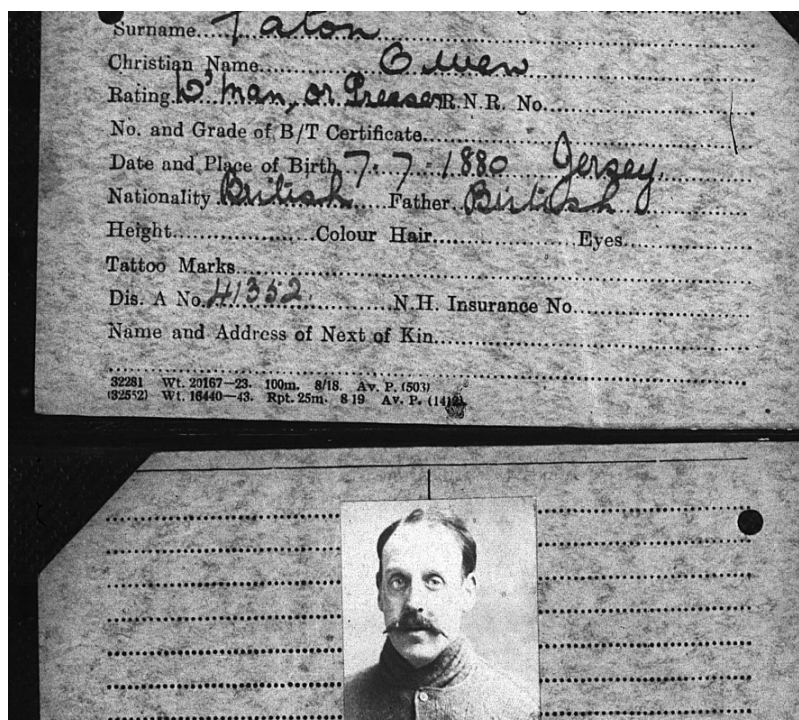 Surname Paton
Christian Name Owen
Rating W'man, or Greaser R.N.R. No.
No. and Grade of B/T Certificate
Date and Place of Birth 7-7-1880 Jersey
Nationality British Father British
Height Colour Hair Eyes
Tattoo Marks
Dis. A No. 41352 N.H. Insurance No.
Name and Address of Next of Kin
32281 Wt. 20167—23. 100m. 8/18. Av. P. (503)
(32552) Wt. 16440—43. Rpt. 25m. 8 19 Av. P. (1412)